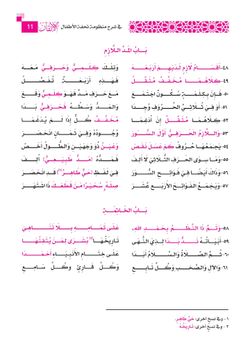 في شرح منظومة تحفة الأطفال 11
بَابُ المَدِّ اللَّازِمِ
٤٨- أَقْسَامُ لَازِمٍ لَدَيْهِمْ أَرْبَعَهْ وَتِلْكَ كِلْمِيٌّ وَحَرْفِيٌّ مَعَهْ
٤٩- كِلَاهُمَا مُخَفَّفٌ مُثَقَّلُ فَهَذِهِ أَرْبَعَةٌ تُفَصَّلُ
٥٠- فَإِنْ بِكِلْمَةٍ سُكُونٌ اجْتَمَعْ مَعْ حَرْفِ مَدٍّ فَهْوَ كِلْمِيٌّ وَقَعْ
٥١- أَوْ فِي ثُلَاثِيِّ الْحُرُوفِ وُجِدَا وَالمَدُّ وَسْطُهُ فَحَرْفِيٌّ بَدَا
٥٢- كِلَاهُمَا مُثَقَّلٌ إِنْ أُدْغِمَا مُخَفَّفٌ كُلٌّ إِذَا لَمْ يُدْغَمَا
٥٣- وَاللَّازِمُ الْحَرْفِيُّ أَوَّلَ السُّوَرْ وُجُودُهُ وَفِي ثَمَانٍ انْحَصَرْ
٥٤- يَجْمَعُهَا حُرُوفُ كَمْ عَسَلْ نَقَصْ وَعَيْنُ ذُو وَجْهَيْنِ وَالطُّولُ أَخَصْ
٥٥- وَمَا سِوَى الْحَرْفِ الثُّلَاثِي لَا أَلِفْ فَمَدُّهُ مَدًّا طَبِيعِيًّا أُلِفْ
٥٦- وَذَاكَ أَيْضًا فِي فَوَاتِحِ السُّوَرْ فِي لَفْظِ حَيٍّ طَاهِرٍ(١) قَدِ انْحَصَرْ
٥٧- وَيَجْمَعُ الْفَوَاتِحَ الْأَرْبَعْ عَشَرْ صِلْهُ سُحَيْرًا مَنْ قَطَعْكَ ذَا اشْتَهَرْ
بَابُ الخَاتِمَةِ
٥٨- وَتَمَّ ذَا النَّظْمُ بِحَمْدِ اللهِ عَلَى تَمَامِهِ بِلَا تَنَاهِي
٥٩- أَبْيَاتُهُ نَدٌّ بَدَا لِذِي النُّهَى تَارِيخُهَا(٢) بُشْرَى لِمَنْ يُتْقِنُهَا
٦٠- ثُمَّ الصَّلَاةُ وَالسَّلَامُ أَبَدَا عَلَى خِتَامِ الْأَنْبِيَاءِ أَحْمَدَا
٦١- وَالْآلِ وَالصَّحْبِ وَكُلِّ تَابِعِ وَكُلِّ قَارِئٍ وَكُلِّ سَامِعِ
١ - وفي نسخ أخرى: حيٌّ طاهر.
٢ - وفي نسخ أخرى: تاريخه.